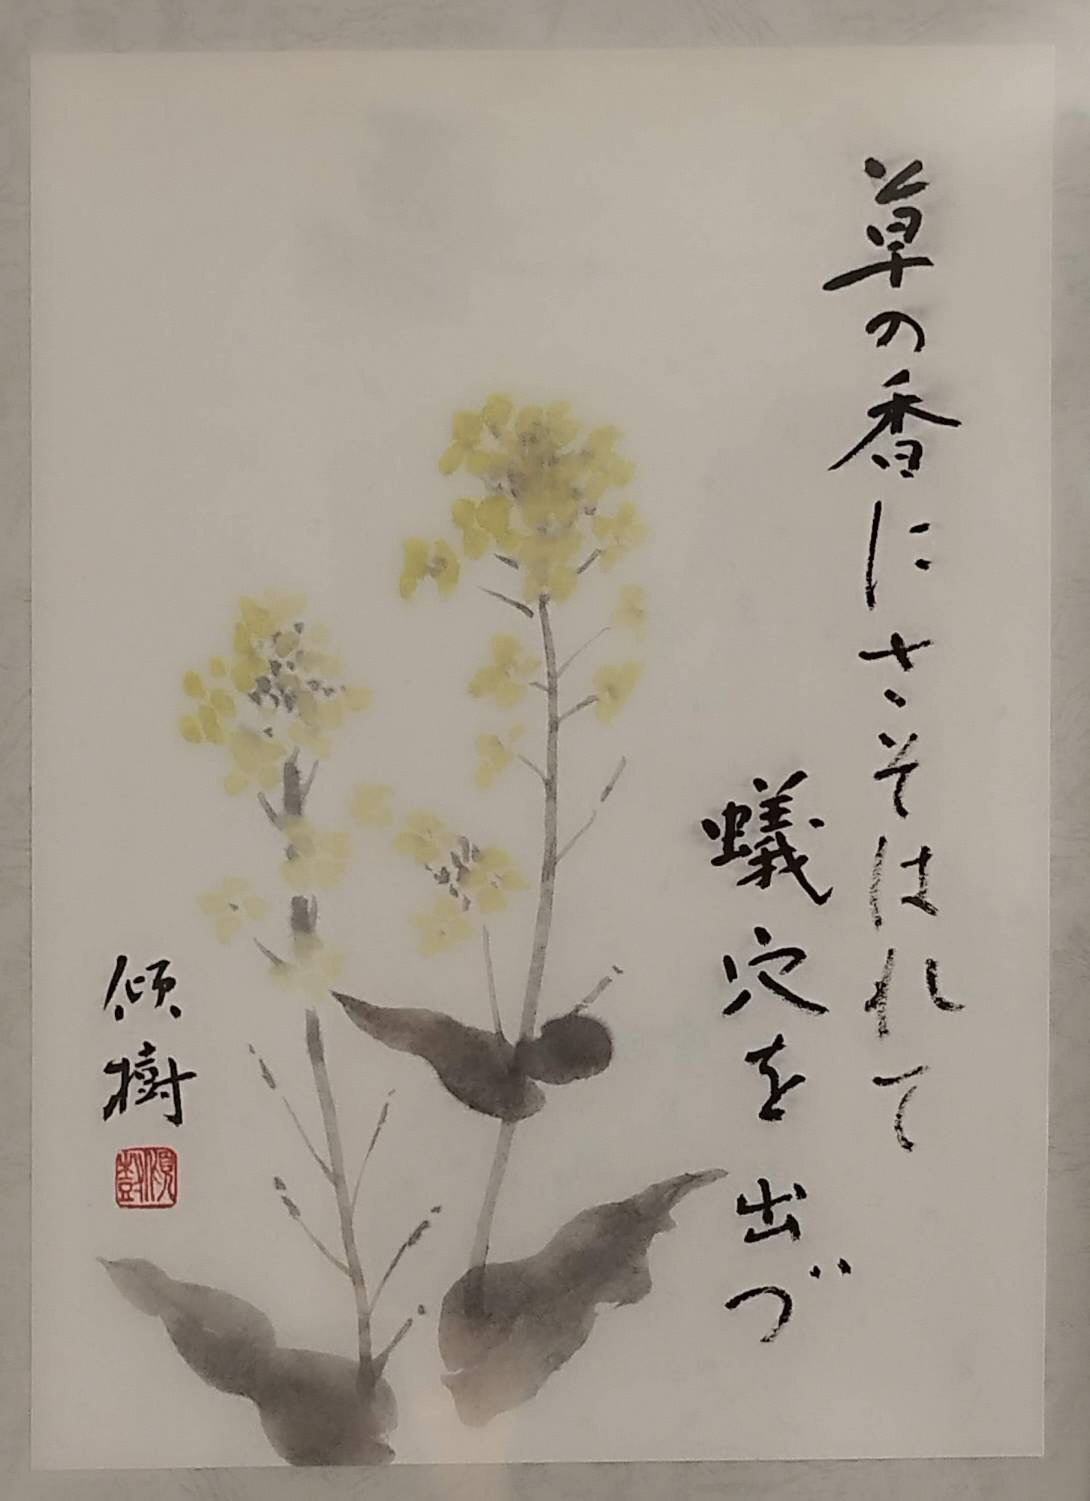 草の香にさそはれて
蟻穴を出づ
傾樹